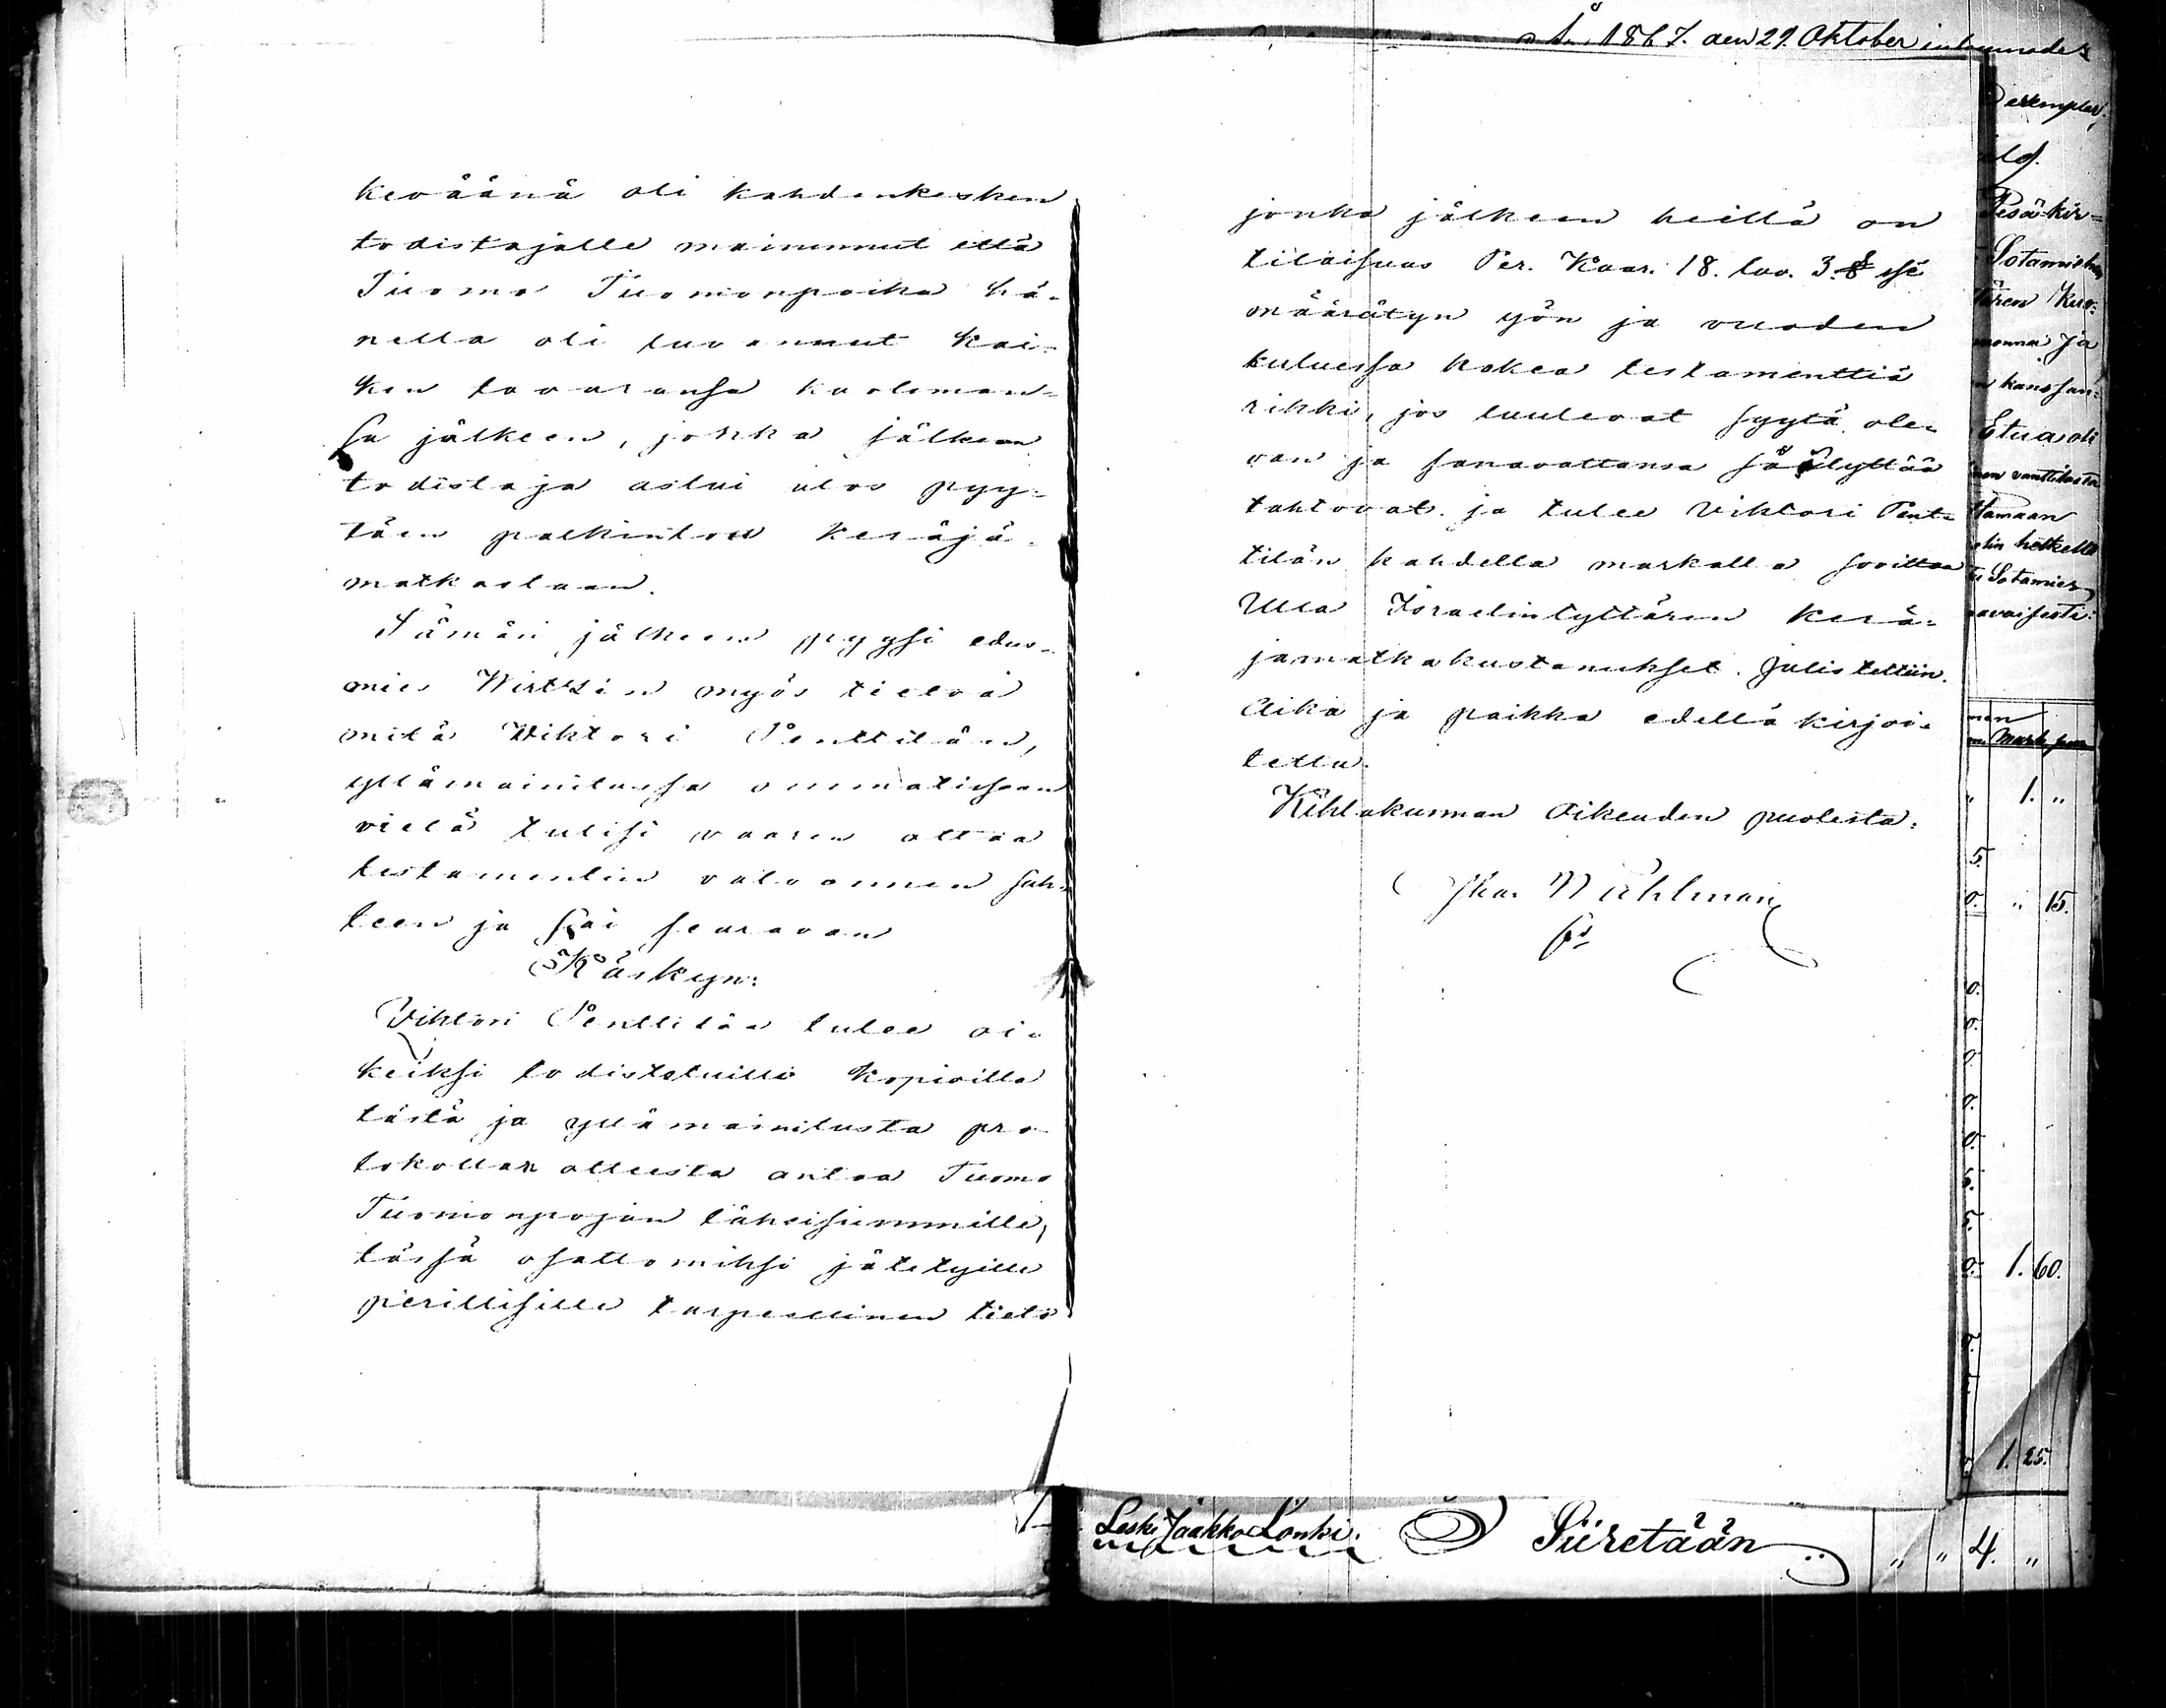 keväänä oli kahdenkesken
todistajalle mainunnut että
Tuomo Tuomonpoika hä-
nella oli luvannut kai-
ken tavaransa kuoleman-
sa jälkeen, jonka jälkeen
todistaja astui ulos pyy-
täen palkintoa keräjä-
matkastaan.
Tämän jälkeen pyysi edus-
mies Wirtzin myös tietoa
mitä Wiktori Penttilän,
yllämainitussa ommatissaan
vielä tulisi vaarin ottaa
testamentin valvonnen suh-
teen ja sai seuraavan
Käskyn:
Viktori Penttilän tulee oi-
keiksi todistetuilla kopioilla
tästä ja yllämainitusta pro-
tokollan otteesta antaa Tuomo
Tuomonpojan läheisimmille,
tässä osattomiksi jätetyille
perillisille tarpeellinen tieto
jonka jälkeen heillä on
tilaisuus Per. Kaar. 18. luv. 3. § ssä
määrätyn yön ja vuoden
kuluessa hakea testamenttiä
rikki, jos luulevat syytä ole-
van ja sanavaltansa säilyttää
tahtovat. ja tulee Viktori Pent-
tilän kahdella markalla sovittaa
Ulla Israelintyttären kerä-
jämatkakustanukset. Julistettiin.
Aika ja paikka edellä kirjoi-
tettu.
Kihlakunnan Oikeuden puolesta:
Wählman
Å 1867. den 29. Oktober
exemplar
Pesäkir-
Sotamiehen
ja
kanssan-
Etua oli
hetkellä
Sotamies
Mark
1. "
" 15.
1. 60.
1. 25.
Leski Jaakko Lonki. Siiretään " " 4. "